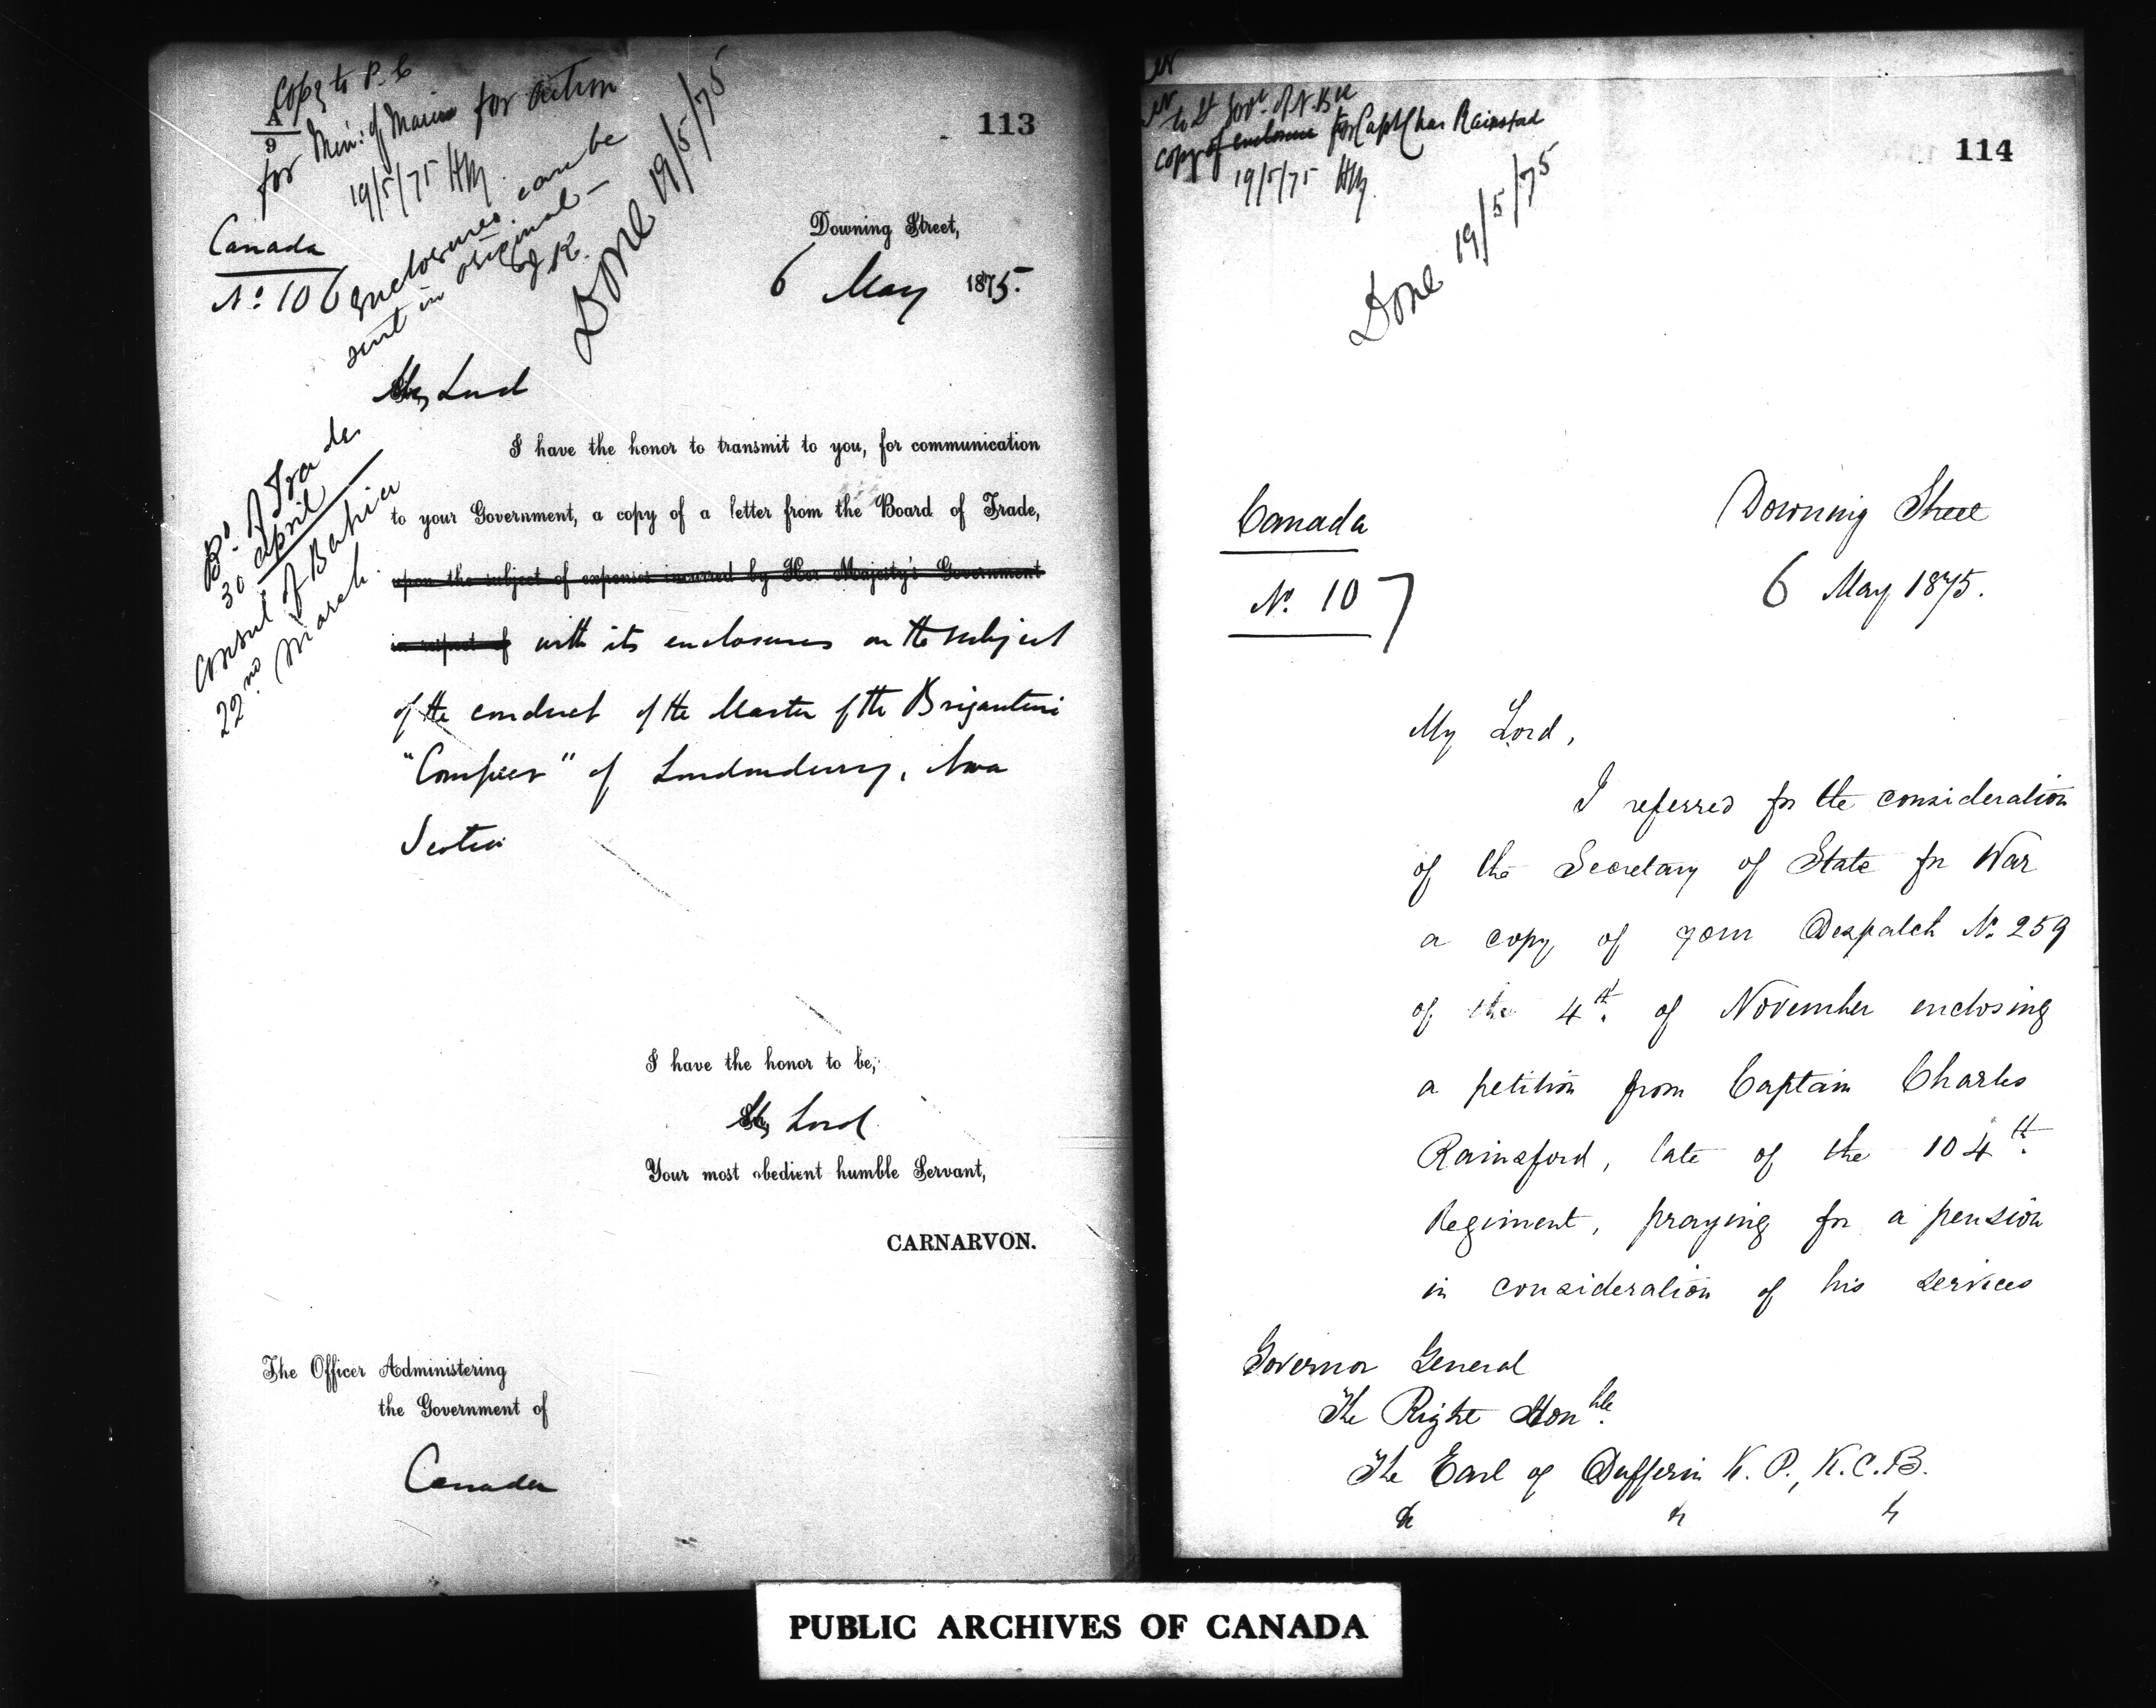 Copy to P. C
A
9
for Min: of Marine for action
19/5/75 HM.
113
Canada
No 106
Enclosures can be
sent in original —
Done 19/5/75
Downing Street,
6 May 1875.
My Lord
Bd. of Trade
30 April
Consul of Bahia
22nd March.
I have the honor to transmit to you, for communication
to your Government, a copy of a letter from the Board of Trade,
upon the subject of expenses incurred by Her Majesty's Government
in respect of with its enclosures on the subject
of the conduct of the Master of the Brigantine
" of Londonderry, Nova
Scotia
I have the honor to be,
My Lord
Your most obedient humble Servant,
CARNARVON.
The Officer Administering
the Government of
Canada
to Lt Govr. of N.B
copy of enclosure for Capt Chas Rainsford
19/5/75 HM.
114
Done 19/5/75
Canada
No. 107
Downing Street
6 May 1875.
My Lord,
I referred for the consideration
of the Secretary of State for War
a copy of your Despatch No. 259
of the 4th. of November enclosing
a petition from Captain Charles
Rainsford, late of the 104th.
Regiment, praying for a pension
in consideration of his services
Governor General
The Right Honble.
The Earl of Dufferin K.P., K.C.B.
&c &c &c
PUBLIC ARCHIVES OF CANADA